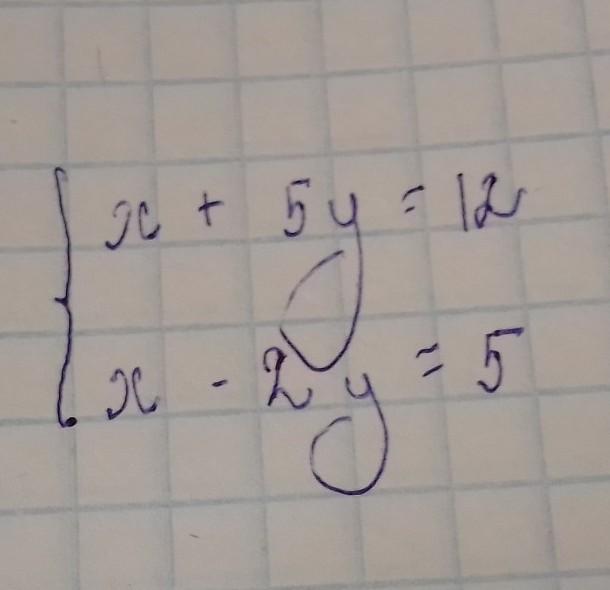 x + 5y = 12
x - 2y = 5